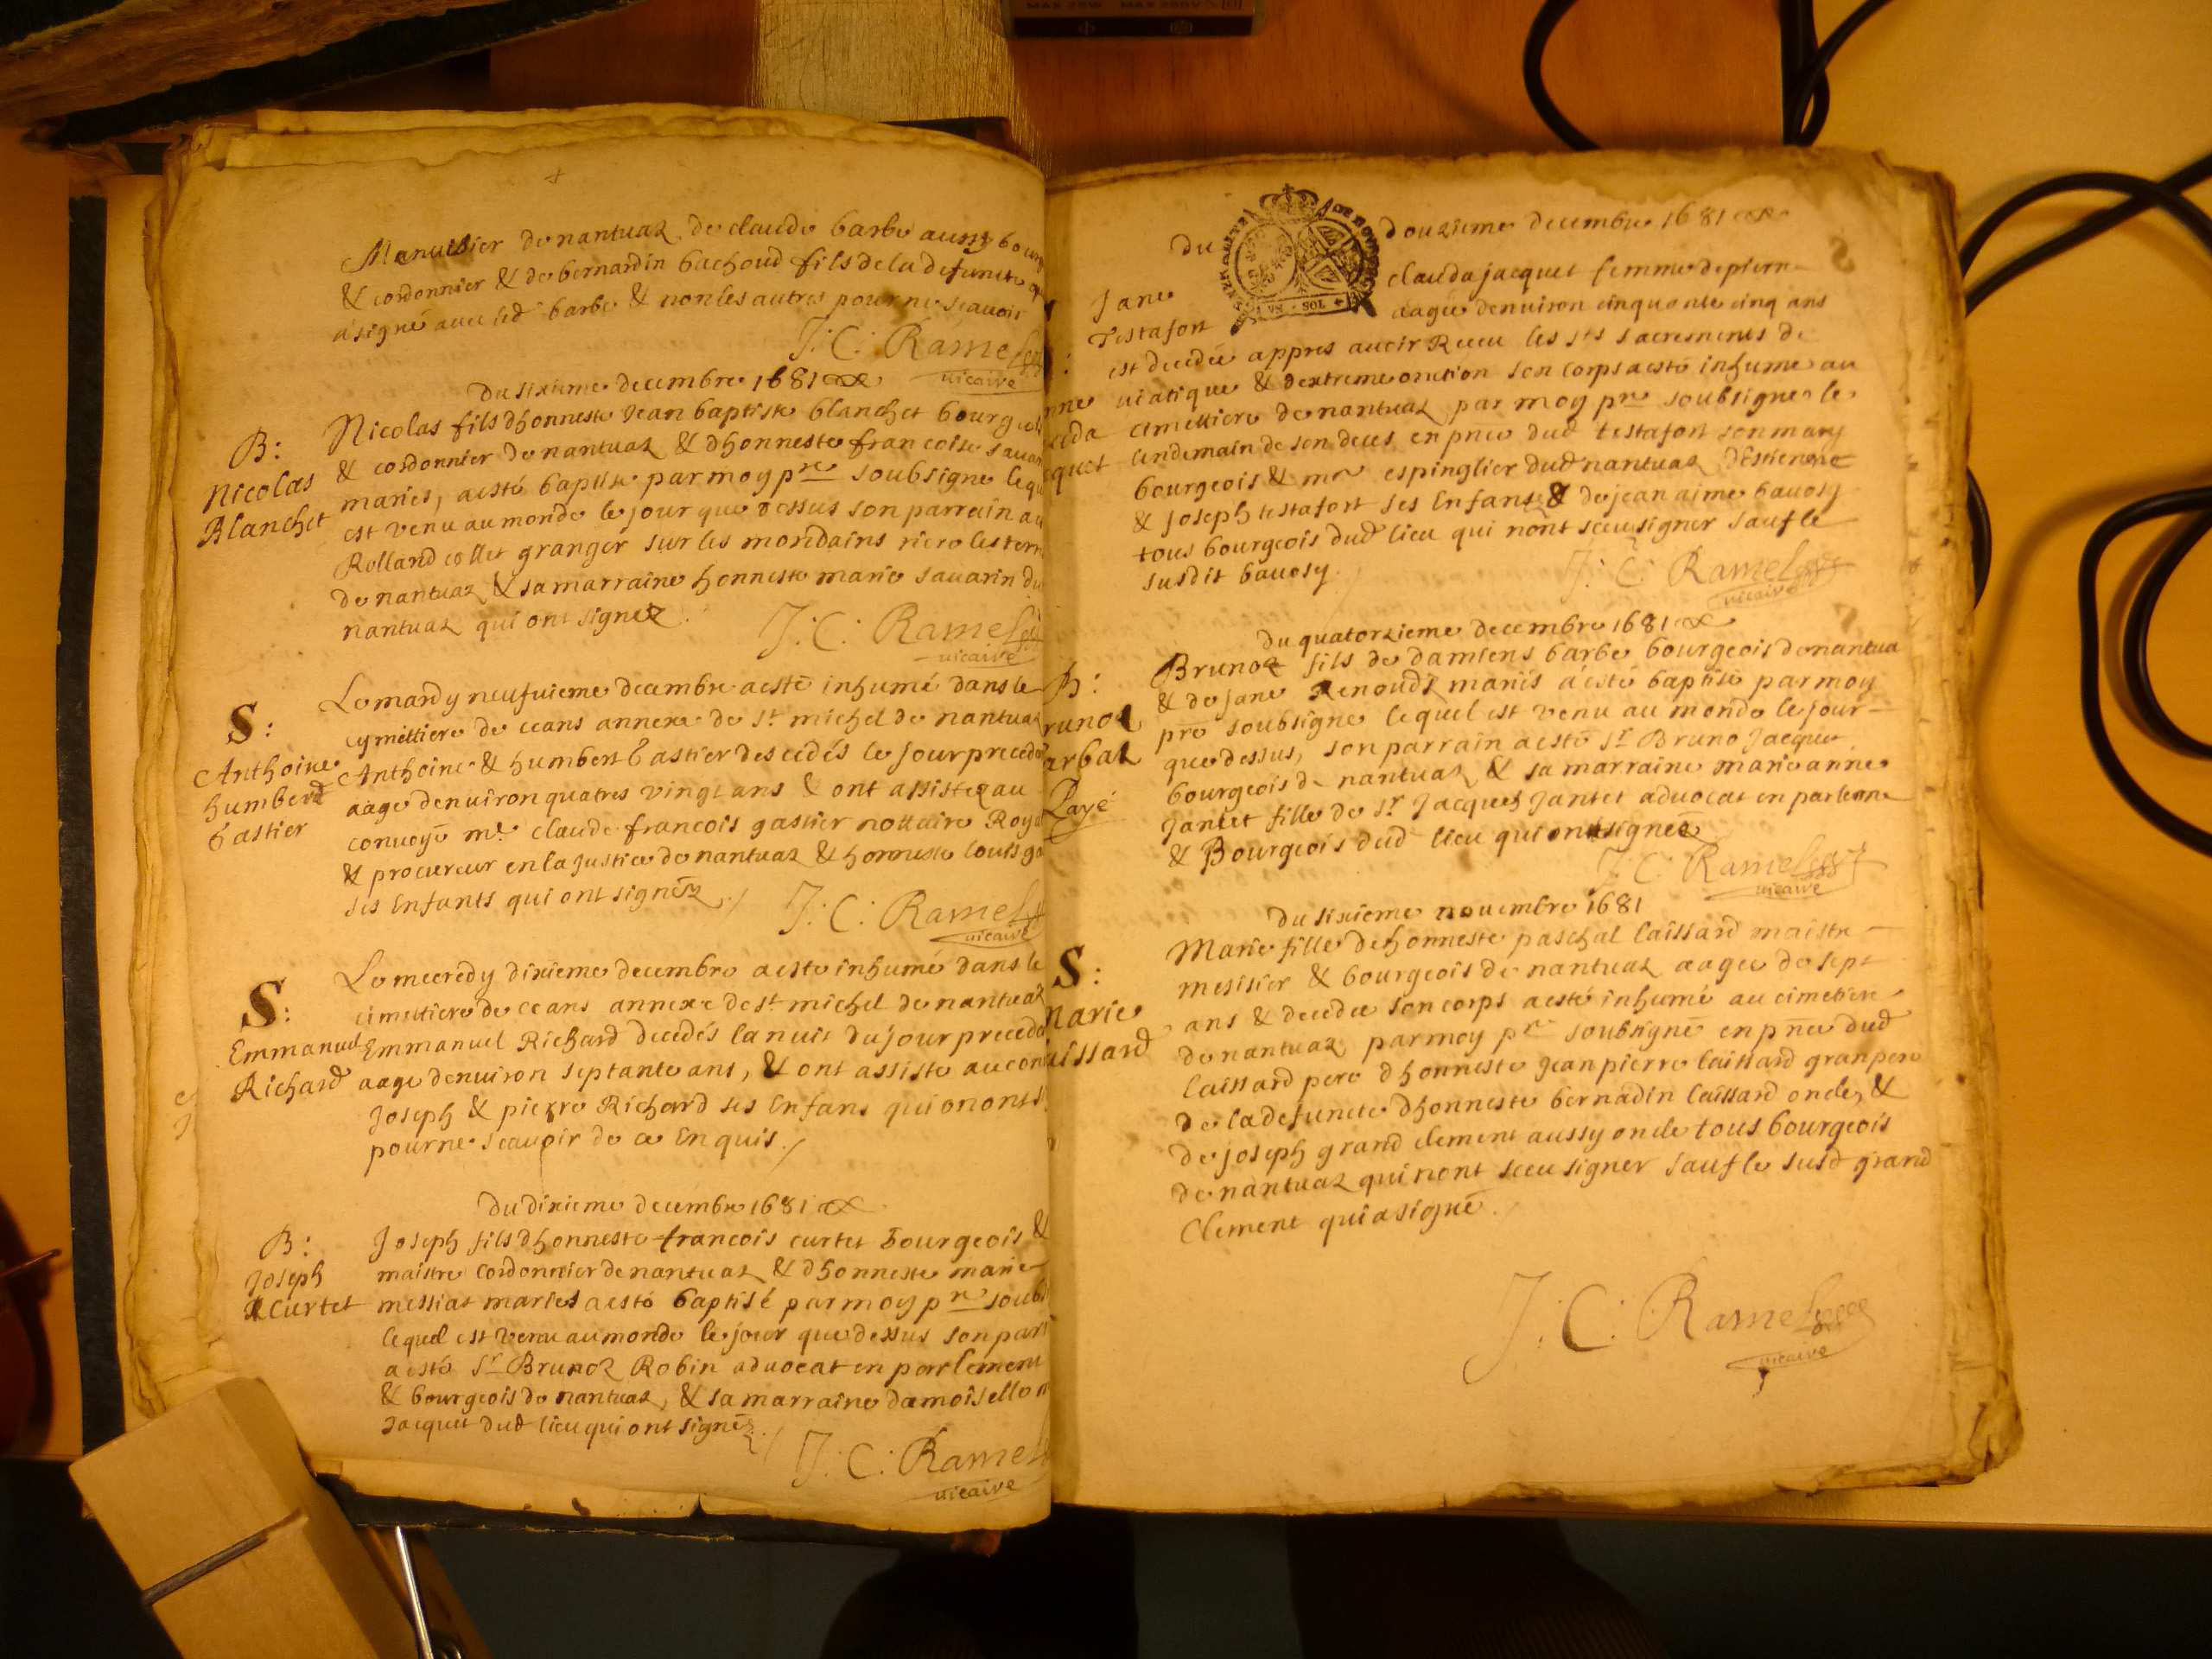 Manuisier de nantuaz, de claude barbe aussy bourg
& cordonnier & de bernardin bachoud fils de la defuncte
a signé avec led barbe & non les autres pour ne scavoir
J: C: Ramel
vicaire
Du sixieme decembre 1681
B:
Nicolas
Blanchet
Nicolas fils dhonneste Jean baptiste blanchet bourgeois
& cordonnier de nantuaz & dhonneste francoise savar
mariés, a esté baptise par moy pre soubsigne lequ
est venu au monde le jour que dessus son parrain a
Rolland collet granger sur les mondains riere les terr
de nantuaz & sa marraine honneste marie savarin du
nantuaz qui ont signez
J: C: Ramel
vicaire
S:
Anthoine
humberd
bastier
Le mardy neufuieme decembre a esté inhumé dans le
cymettiere de ceans annexe de st michel de nantuaz
Anthoine & humbert bastier descedés le jour preced
aage denuiron quatres vingt ans & ont assistez au
convoye me claude francois gastier nottaire Royal
& procureur en la justice de nantuaz & honneste louis ga
ses Enfants qui ont signéz
J: C: Ramel
vicaire
S:
Emmanuel
Richard
Le mecredy dixieme decembre a este inhumé dans le
cimettiere de ceans annexe de st michel de nantuaz
Emmanuel Richard decedés la nuit du jour precede
aage denuiron septante ans, & ont assiste au con
Joseph & pierre Richard ses Enfans qui nont s
pour ne scavoir de ce Enquis
Du dixieme decembre 1681
B:
Joseph
Curtet
Joseph fils dhonneste francois curtet bourgeois &
maistre cordonnier de nantuaz & dhonneste marie
messiat mariés a esté baptisé par moy pre soubs
lequel est venu au monde le jour que dessus son parr
a esté Sr Brunoz Robin advocat en parlement
& bourgeois de nantuaz, & sa marraine damoiselle m
Jacquet dud lieu qui ont signéz
J: C: Ramel
vicaire
Du douzieme decembre 1681
GENERALITE DE BOVRGOGNE
VN SOL
nne
uda
quet
Jane
Testafort
clauda jacquet femme de pierre
aagée denuiron cinquante cinq ans
est decedée appres avoir Receu les sts sacrements de
viatique & dextreme onction son corps a esté inhume au
cimettiere de nantuaz par moy pre soubsigne le
lendemain de son deces, en pnce dud testafort son mary
bourgeois & me espinglier dud nantuaz destienne
& joseph testafort ses Enfans & de jean aime bavosy
tous bourgeois dud lieu qui nont sceu signer sauf le
susdit bavosy.
J: C: Ramel
vicaire
Du quatorzieme decembre 1681
B:
runoz
arbaz
Payé
Brunoz fils de damiens barbe bourgeois de nantua
& de jane Renoudz mariés a esté baptise par moy
pre soubsigne lequel est venu au monde le jour
que dessus, son parrain a esté sr Bruno Jacquet
bourgeois de nantuaz & sa marraine marie anne
Jantet fille de sr Jacques Jantet advocat en parleme
& Bourgeois dud lieu qui ont signéz
J: C: Ramel
vicaire
Du sixieme novembre 1681
S:
Marie
aissard
Marie fille de honneste paschal laissard maistre
mesisier & bourgeois de nantuaz aagee de sept
ans & decedee son corps a esté inhumé au cimetiere
de nantuaz par moy pre soubsigné en pnce dud
laissard pere dhonneste jean pierre laissard gran pere
de la defuncte dhonneste bernadin laissard oncle, &
de joseph grand clement aussy oncle tous bourgeois
de nantuaz qui nont sceu signer sauf le susd grand
Clement qui a signé.
J: C: Ramel
vicaire